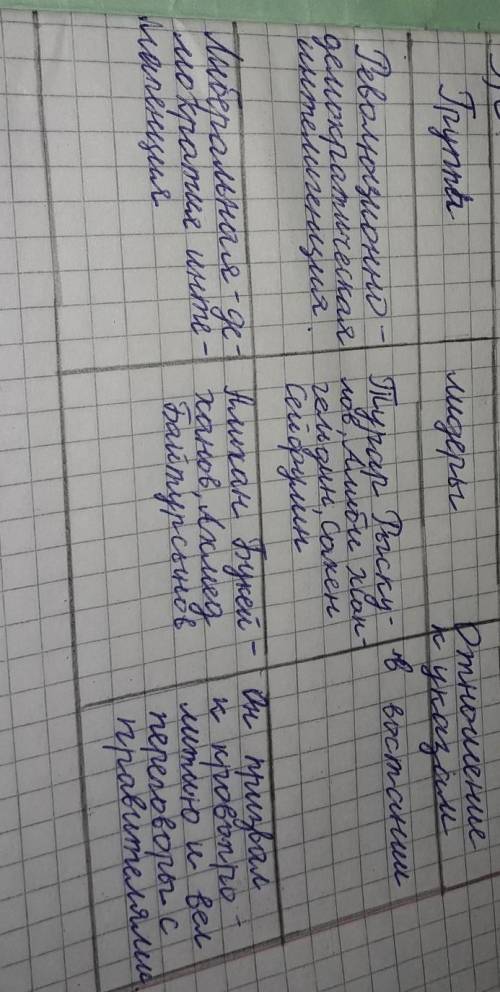 Группы
лидеры
Отношение
к указам
Революционно-
демократическая
интелигенция.
Турар Рыску-
лов, Алиби Жан-
гельдин, Сакен
Сейфулин
в востании
Либеральная-де-
мократия инте-
легенция
Алихан Букей-
ханов, Ахмед
Байтурсынов
Он призвал
к кровопро-
литию и вел
переговоры с
правителями